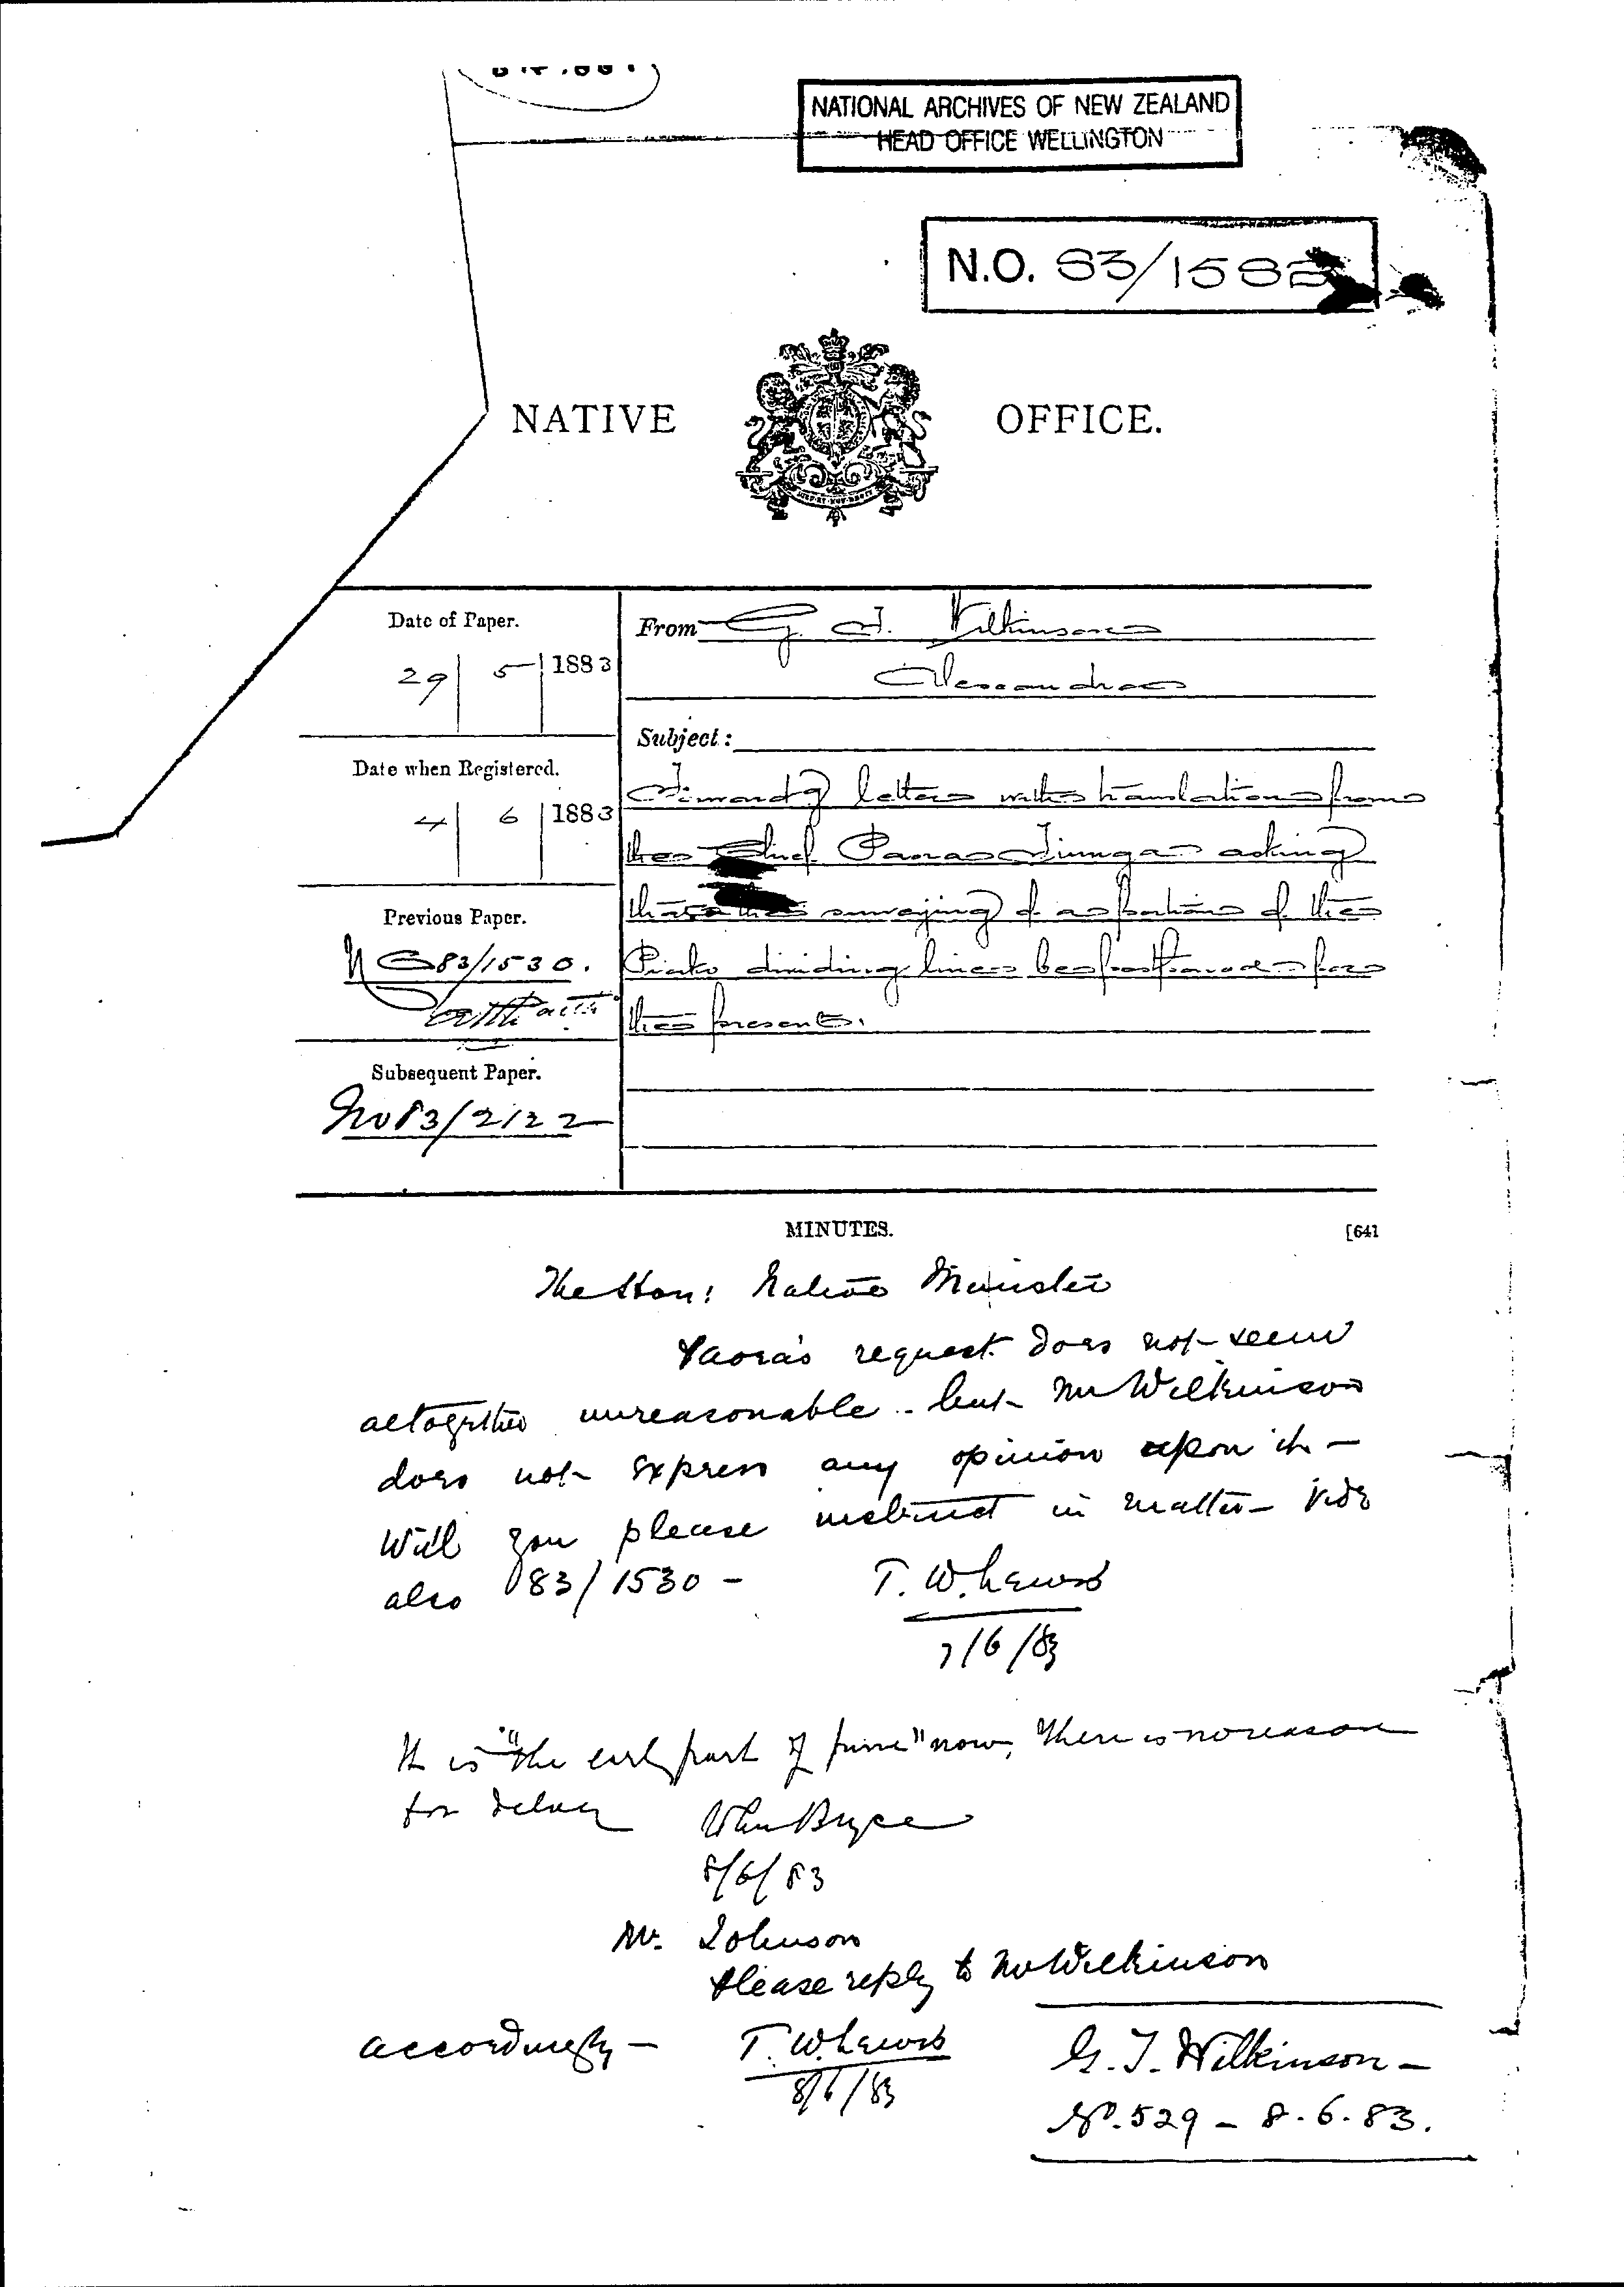 NATIONAL ARCHIVES OF NEW ZEALAND
HEAD OFFICE WELLINGTON
N.O. 83/1582
NATIVE OFFICE.
Date of Paper.
29 5 1883
Date when Registered.
4 6 1883
Previous Paper.
83/1530.
Subsequent Paper.
No 83/2122
From G. T. Wilkinson
Alexandra
Subject:
Forwardg letter with translation from
the Chief Paora Tiunga asking
that the surveying of a portion of the
Piako dividing line be postponed for
the present.
MINUTES.
[641
The Hon: Native Minister
Paora's request does not seem
altogether unreasonable - but Mr Wilkinson
does not express any opinion upon it -
Will you please instruct in matter - vide
also 83/1530 -
T. W. Lewis
7/6/83
It is "the early part of June" now, there is no reason
for delay
John Bryce
8/6/83
Mr. Johnson
Please reply to Mr Wilkinson
accordingly -
T. W. Lewis
8/6/83
G. T. Wilkinson -
No. 529 - 8.6.83.